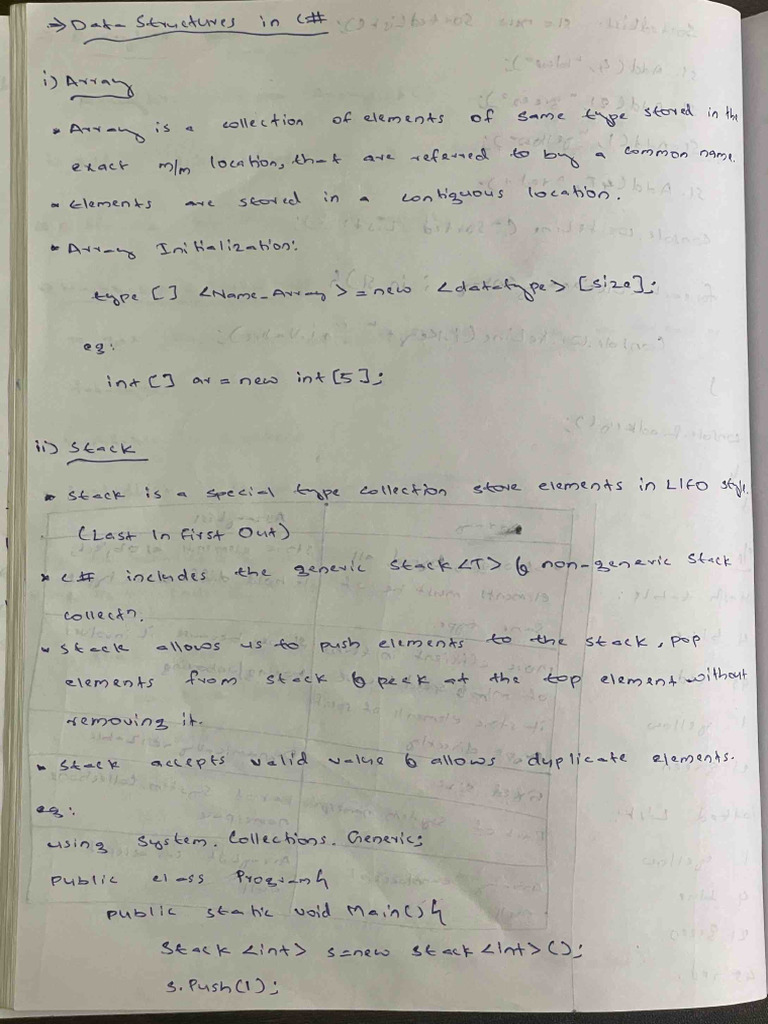 ⇒ Data Structures in C#
i) Array
• Array is a collection of elements of same type stored in the
exact m/m location, that are referred to by a common name.
• Elements are stored in a contiguous location.
• Array Initialization:
type [] <Name_Array> = new <datatype> [size];
eg:
int [] ar = new int [5];
ii) Stack
• Stack is a special type collection store elements in LIFO style.
(Last In First Out)
• C# includes the generic Stack<T> & non-generic Stack
collectn.
• Stack allows us to push elements to the stack, pop
elements from stack & peek at the top element without
removing it.
• Stack accepts valid value & allows duplicate elements.
eg:
using System. Collections. Generic;
public class Program{
public static void Main(){
Stack <int> s=new Stack <int> ();
s.Push(1);